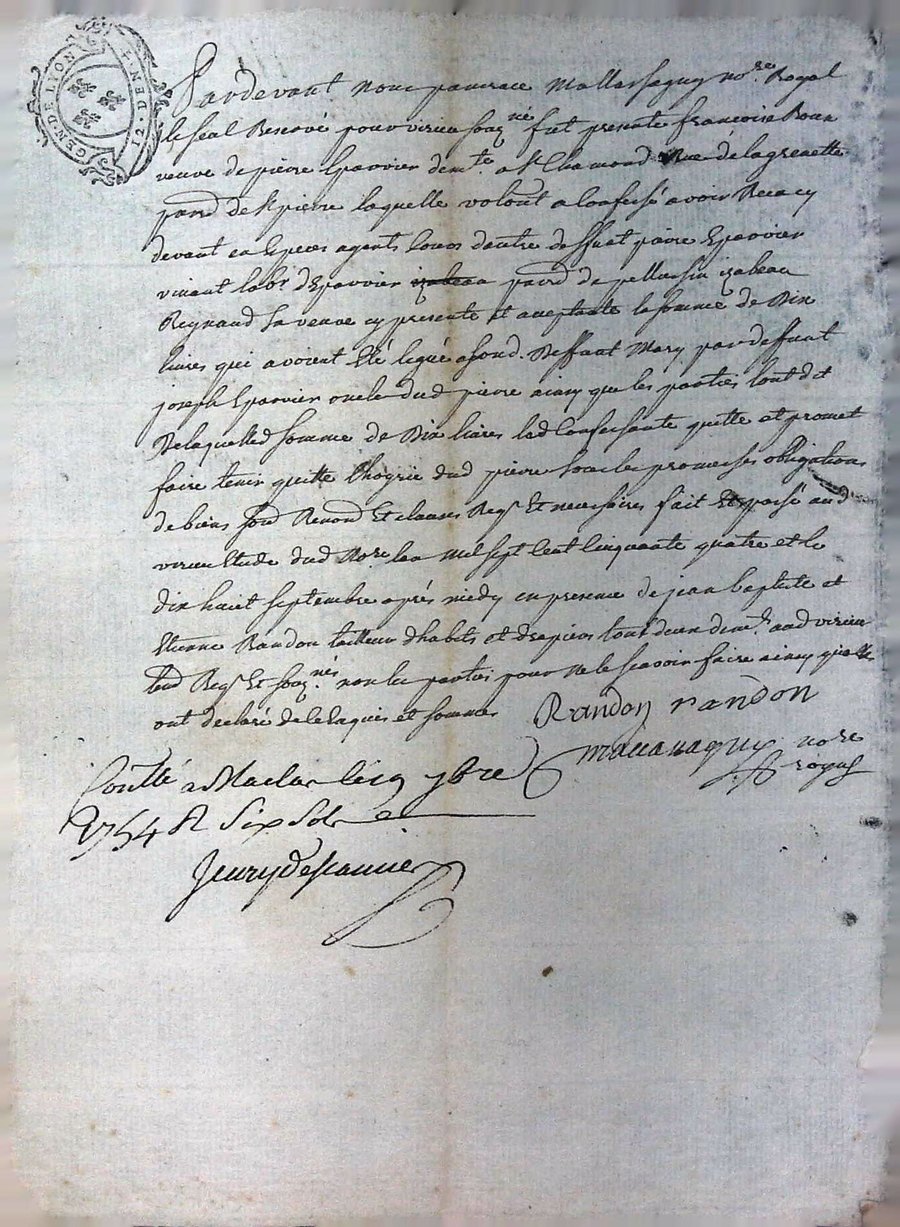 GEN DE LYON
Pardevant nous pancrace Mallassagny no.re Royal
le seal Reservé pour virieu souz.né fut presente francoise Roux
veuve de pierre Eparvier dem.te a St Chamond Rue de la grenette
parr.d de St pierre laquelle volont a Confessé avoir Recu cy
devant en Especes dentre deffunt pierre Eparvier
vivant lab.r d'Eparvier parr.d de pellussin izabeau
Reynaud sa veuve cy presente et acceptante la somme de Dix
livres qui avoient Eté legué a son d. Deffunt Mary par deffunt
joseph Eparvier oncle dud pierre ainsy que les parties l'ont dit
De laquelle d somme de Dix livres lad Confessante quitte et promet
faire tenir quitte l'hoyrie dud pierre sous les promesses obligations
de biens soud Renond Et clauses Req.s Et necessaires fait Et passé aud
virieu Etude dud No.re lan Mil sept Cent Cinquante quatre et le
dix huit septembre après midy en presence de jean baptiste et
Etienne Randon tailleur d'habits et drapiers tout deux dem.t aud virieu
tem Req.s Et souz.nés non les parties pour Ne le scavoir faire ainsy qu'elles
ont declaré de ce Enquis et sommés Randon randon
no.re
royal
Contlé a Maclas le 7bre
1754 R six sols